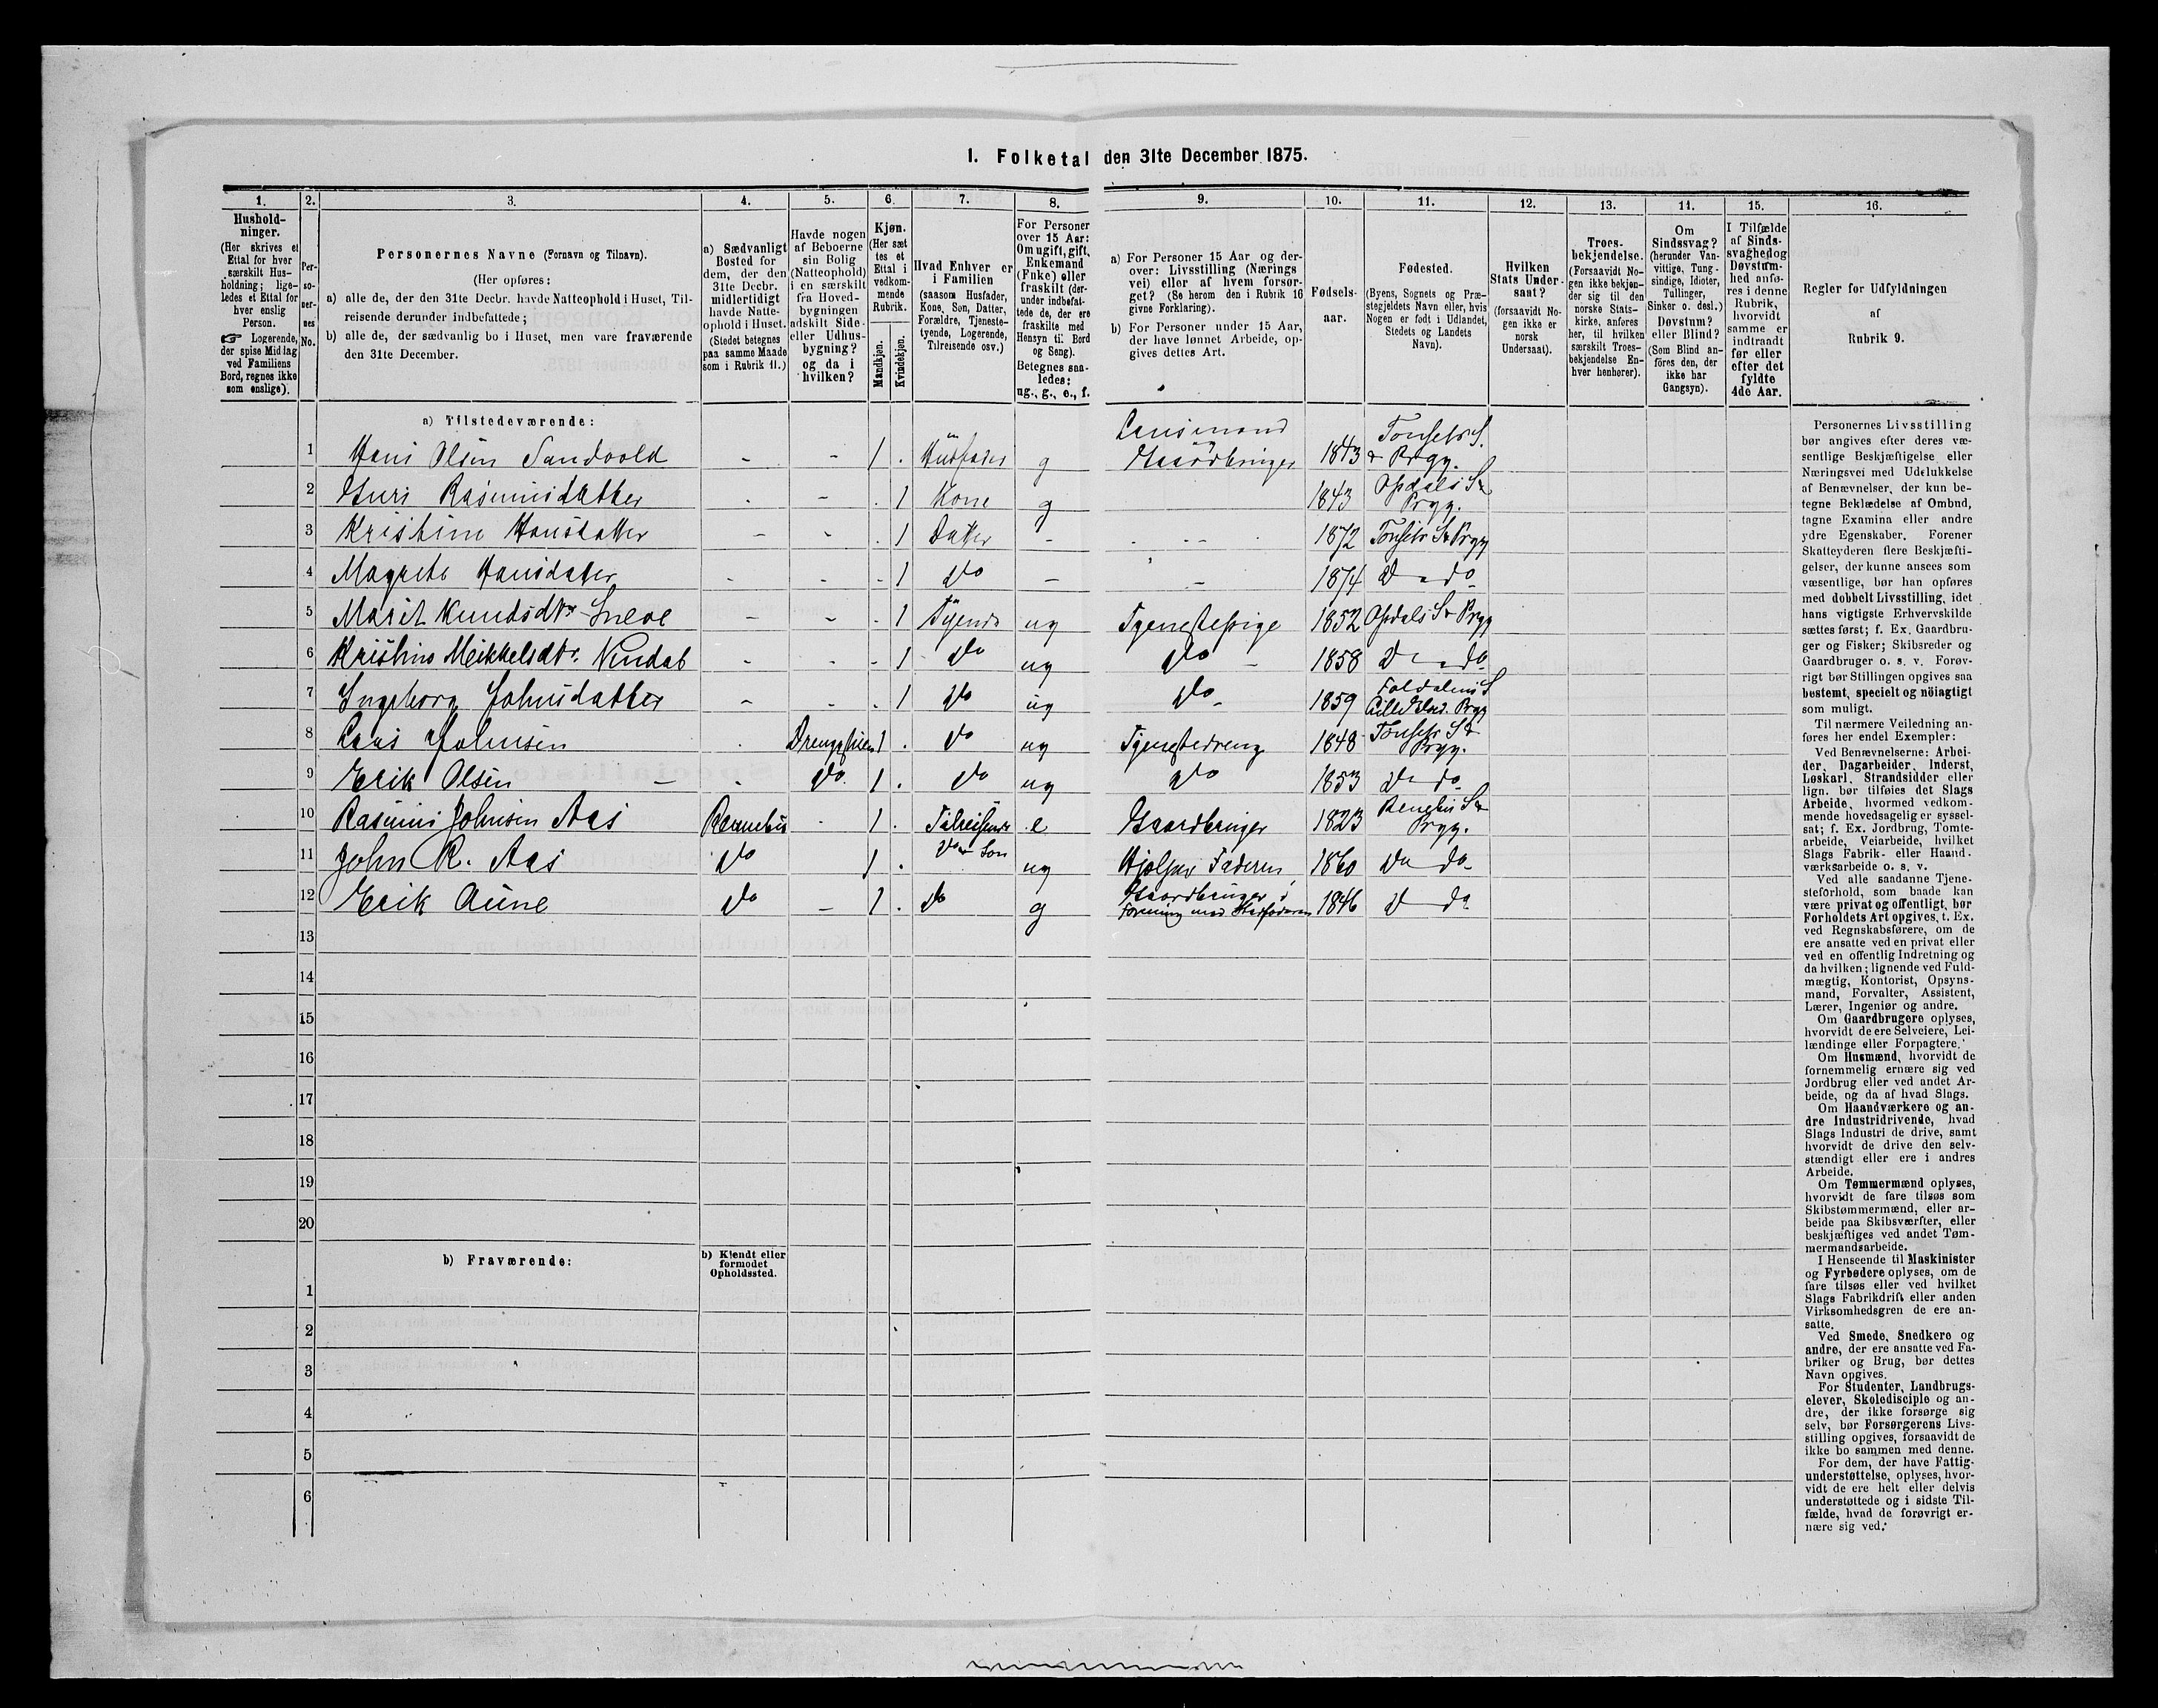 1. Folketal den 31te December 1875.
1.
Hushold-
ninger.
(Her skrives et
Ettal for hver
særskilt Hus-
holdning; lige-
ledes et Ettal for
hver enslig
Person.
☞ Logerende,
der spise Middag
ved Familiens
Bord, regnes ikke
som enslige).
2.
Per-
so-
ner-
nes
No.
3.
Personernes Navne (Fornavn og Tilnavn).
(Her opføres:
a) alle de, der den 31te Decbr. havde Natteophold i Huset, Til-
reisende derunder indbefattede;
b) alle de, der sædvanlig bo i Huset, men vare fraværende
den 31te December.
4.
a) Sædvanligt
Bosted for
dem, der den
31te Decbr.
midlertidigt
havde Natte-
ophold i Huset.
(Stedet betegnes
paa samme Maade
som i Rubrik 11.)
5.
Havde nogen
af Beboerne
sin Bolig
(Natteophold)
i en særskilt
fra Hoved-
bygningen
adskilt Side-
eller Udhus-
bygning?
og da i
hvilken?
6.
Kjøn.
(Her sæt
tes et
Ettal i
vedkom-
mende
Rubrik.
Mandkjøn.
Kvindekjøn.
7.
Hvad Enhver er
i Familien
(saasom Husfader,
Kone, Søn, Datter,
Forældre, Tjeneste-
tyende, Logerende,
Tilreisende osv.)
8.
For Personer
over 15 Aar:
Om ugift, gift,
Enkemand
(Enke) eller
fraskilt (der-
under indbefat-
tede de, der ere
fraskilte med
Hensyn til Bord
og Seng).
Betegnes saa-
ledes:
ug., g., e., f.
9.
a) For Personer 15 Aar og der-
over: Livsstilling (Nærings
vei) eller af hvem forsør-
get? (Se herom den i Rubrik 16
givne Forklaring).
b) For Personer under 15 Aar,
der have lønnet Arbeide, op-
gives dettes Art.
10.
Fødsels-
aar.
11.
Fødested.
(Byens, Sognets og Præ-
stegjeldets Navn eller, hvis
Nogen er født i Udlandet,
Stedets og Landets
Navn).
12.
Hvilken
Stats Under-
saat?
(forsaavidt No-
gen ikke er
norsk
Undersaat).
13.
Troes-
bekjendelse.
(Forsaavidt No-
gen ikke bekjen-
der sig til den
norske Stats-
kirke, anføres
her, til hvilken
særskilt Troes-
bekjendelse En-
hver henhører).
14.
Om
Sindssvag?
(herunder Van-
vittige, Tung-
sindige, Idioter,
Tullinger,
Sinker o. desl.)
Døvstum?
eller Blind?
(Som Blind an-
föres den, der
ikke har
Gangsyn).
15.
I Tilfælde
af Sinds-
svaghed og
Døvstum-
hed anfø-
res i denne
Rubrik,
hvorvidt
samme er
indtraadt
før eller
efter det
fyldte
4de Aar.
16.
Regler for Udfyldningen
af
Rubrik 9.
a) Tilstedeværende:
1 Hans Olsen Sandvold - - 1 . Husfader g Lensmand og Gaardbruger 1843 Tønsets S. & Prgj.
2 Guri Rasmusdatter . - . 1 Kone g 1843 Opdals S & Prgj.
3 Kristine Hansdatter - - . 1 Datter - 1872 Tønsets S & Prgj
4 Magrete Hansdatter - - . 1 do - - 1874 d - do
5 Marit Knudsdtr Sneve - - . 1 Tyende ug Tjenestepige 1852 Opdals S & Prgj
6 Kristine Meikkelsdtr. - - . 1 do ug do - 1858 d - do
7 Ingeborg Johnsdatter - - . 1 do ug do - 1859 Foldalens S Prgj
8 Lars Johnsen . 1 . do ug Tjenestedreng 1848 Tønsets S & Prgj.
9 Erik Olsen - - do. 1 . do ug do 1853 d - do
10 Rasmus Johnsen Aas Rennebu - 1 . Tilreisende e Gaardbruger 1823 Rennebu S & Prgj.
11 John R. Aas do 1 . do Søn ug Hjelper Faderen 1860 do do
12 Erik Aune do - 1 . do g Gaardbruger i Forening med 1846 d do
13
14
15
16
17
18
19
20
b) Fraværende:
b) Kjendt eller
formodet
Opholdssted.
1
2
3
4
5
6
Personernes Livsstilling
bør angives efter deres væ-
sentlige Beskjæftigelse eller
Næringsvei med Udelukkelse
af Benævnelser, der kun be-
tegne Beklædelse af Ombud,
tagne Examina eller andre
ydre Egenskaber. Forener
Skatteyderen flere Beskjæfti-
gelser, der kunne ansees som
væsentlige, bør han opføres
med dobbelt Livsstilling, idet
hans vigtigste Erhvervskilde
sættes først; f. Ex. Gaardbru-
ger og Fisker; Skibsreder og
Gaardbruger o. s. v. Forøv-
rigt bør Stillingen opgives saa
bestemt, specielt og nöiagtigt
som muligt.
Til nærmere Veiledning an-
føres her endel Exempler:
Ved Benævnelserne: Arbei-
der, Dagarbeider, Inderst,
Løskarl, Strandsidder eller
lign. bør tilføies det Slags
Arbeide, hvormed vedkom-
mende hovedsagelig er syssel-
sat; f. Ex. Jordbrug, Tomte-
arbeide, Veiarbeide, hvilket
Slags Fabrik- eller Haand-
værksarbeide o. s. v.
Ved alle saadanne Tjene-
steforhold, som baade kan
være privat og offentligt, bør
Forholdets Art opgives, t. Ex.
ved Regnskabsførere, om de
ere ansatte ved en privat eller
ved en offentlig Indretning og
da hvilken; lignende ved Fuld-
mægtig, Kontorist, Opsyns-
mand, Forvalter, Assistent,
Lærer, Ingeniør og andre.
Om Gaardbrugere oplyses,
hvorvidt de ere Selveiere, Lei-
lændinge eller Forpagtere.
Om Husmænd, hvorvidt de
fornemmelig ernære sig ved
Jordbrug eller ved andet Ar-
beide, og da af hvad Slags.
Om Haandværkere og an-
dre Industridrivende, hvad
Slags Industri de drive, samt
hvorvidt de drive den selv-
stændigt eller ere i andres
Arbeide.
Om Tømmermænd oplyses,
hvorvidt de fare tilsøs som
Skibstømmermænd, eller ar-
beide paa Skibsværfter, eller
beskjæftiges ved andet Tøm-
mermandsarbeide.
I Henseende til Maskinister
og Fyrbødere oplyses, om de
fare tilsøs eller ved hvilket
Slags Fabrikdrift eller anden
Virksomhedsgren de ere an-
satte.
Ved Smede, Snedkere og
andre, der ere ansatte ved Fa-
briker og Brug, bør dettes
Navn opgives.
For Studenter, Landbrugs-
elever, Skoledisciple og an-
dre, der ikke forsørge sig
selv, bør Forsørgerens Livs-
stilling opgives, forsaavidt de
ikke bo sammen med denne.
For dem, der have Fattig-
understøttelse, oplyses, hvor-
vidt de ere helt eller delvis
understøttede og i sidste Til-
fælde, hvad de forøvrigt er-
nære sig ved.